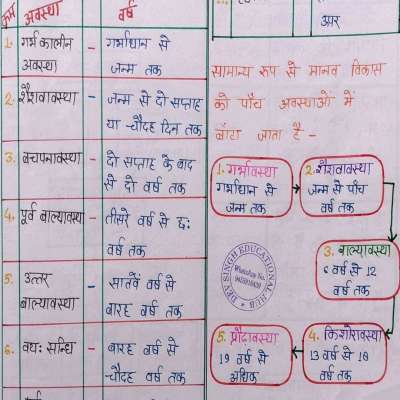 क्रम अवस्था वर्ष
1. गर्भ कालीन - गर्भाधान से
अवस्था जन्म तक
2. शैशवावस्था - जन्म से दो सप्ताह
या चौदह दिन तक
3. बचपनावस्था - दो सप्ताह के बाद
से दो वर्ष तक
4. पूर्व बाल्यावस्था - तीसरे वर्ष से छः
वर्ष तक
5. उत्तर सातवें वर्ष से
बाल्यावस्था - बारह वर्ष तक
6. वयः सन्धि - बारह वर्ष से
चौदह वर्ष तक
सामान्य रूप से मानव विकास
को पाँच अवस्थाओं में
बाँटा जाता है -
1. गर्भावस्था
गर्भाधान से
जन्म तक
2. शैशवावस्था
जन्म से पाँच
वर्ष तक
3. बाल्यावस्था
6 वर्ष से 12
वर्ष तक
4. किशोरावस्था
13 वर्ष से 18
वर्ष तक
5. प्रौढावस्था
19 वर्ष से
अधिक
DEV SINGH EDUCATIONAL HUB
WhatsApp No.